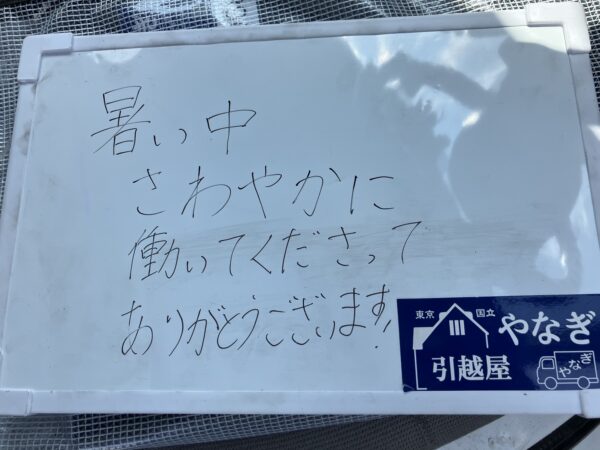 暑い中
さわやかに
働いてくださって
ありがとうございます!
東京 国立 やなぎ
引越屋 やなぎ